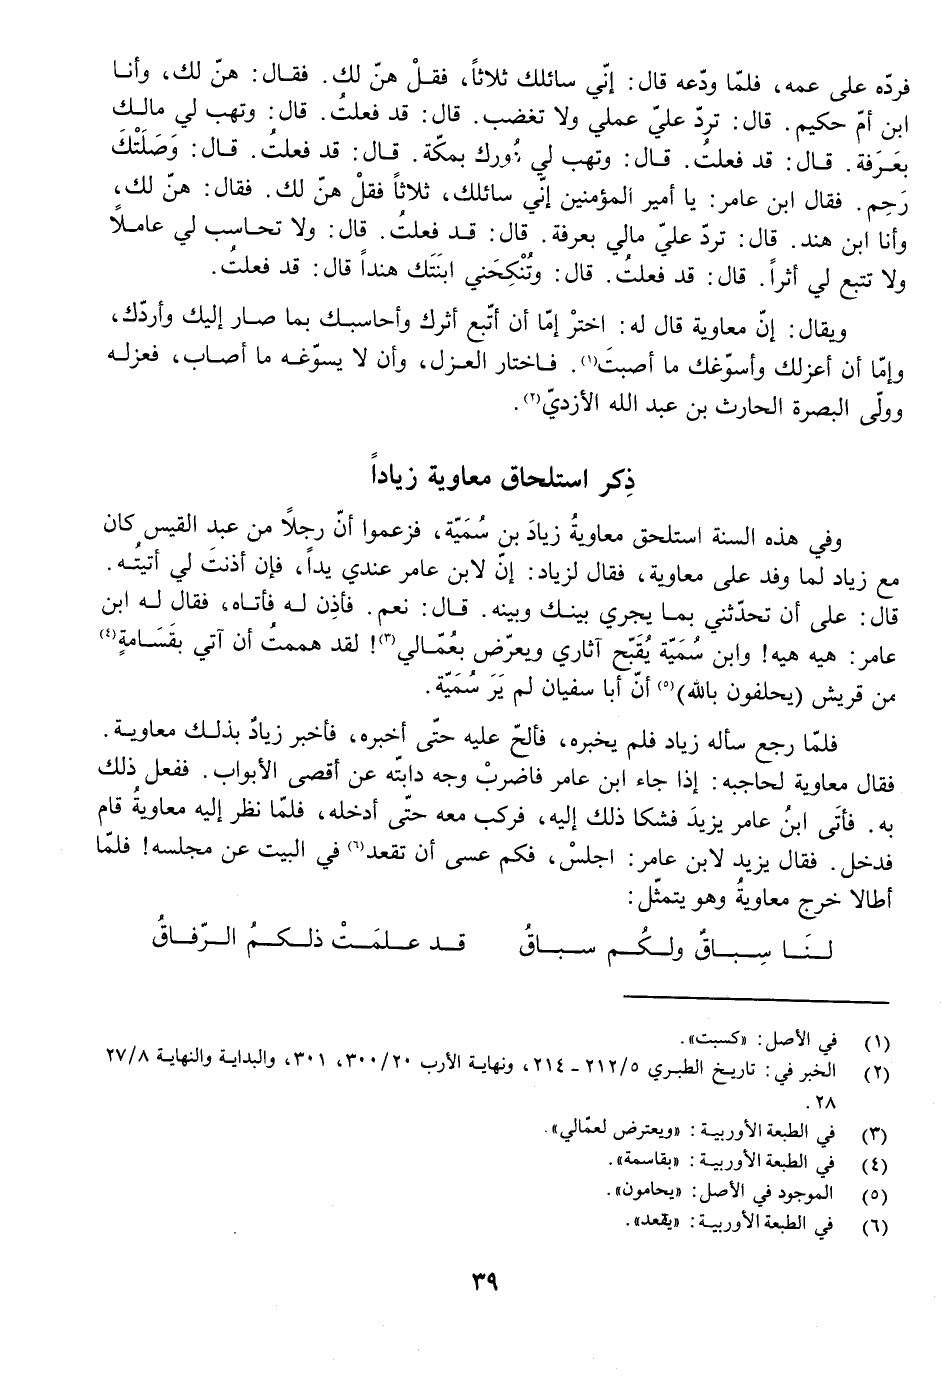 فردّه على عمه، فلمّا ودّعه قال: إنّي سائلك ثلاثاً، فقلْ هنّ لك. فقال: هنّ لك، وأنا
ابن أمّ حكيم. قال: تردّ عليّ عملي ولا تغضب. قال: قد فعلتُ. قال: وتهب لي مالك
بعَرَفة. قال: قد فعلتُ. قال: وتهب لي دُورك بمكّة. قال: قد فعلتُ. قال: وَصَلَتْكَ
رَحِم. فقال ابن عامر: يا أمير المؤمنين إنّي سائلك، ثلاثاً فقلْ هنّ لك. فقال: هنّ لك،
وأنا ابن هند. قال: تردّ عليّ مالي بعرفة. قال: قد فعلتُ. قال: ولا تحاسب لي عاملاً
ولا تتبع لي أثراً. قال: قد فعلتُ. قال: وتُنْكِحَني ابنَتَك هنداً قال: قد فعلتُ.
ويقال: إنّ معاوية قال له: اخترْ إمّا أن أتّبع أثرك وأحاسبك بما صار إليك وأردّك،
وإمّا أن أعزلك وأسوّغك ما أصبتَ(١). فاختار العزل، وأن لا يسوّغه ما أصاب، فعزله
وولّى البصرة الحارث بن عبد الله الأزديّ(٢).
ذِكر استلحاق معاوية زياداً
وفي هذه السنة استلحق معاويةُ زيادَ بن سُمَيّة، فزعموا أنّ رجلاً من عبد القيس كان
مع زياد لما وفد على معاوية، فقال لزياد: إنّ لابن عامر عندي يداً، فإن أذنتَ لي أتيتُه.
قال: على أن تحدّثني بما يجري بينك وبينه. قال: نعم. فأذِن له فأتاه، فقال له ابن
عامر: هيه هيه! وابن سُمَيّة يُقَبّح آثاري ويعرّض بعُمّالي(٣)! لقد هممتُ أن آتي بقَسَامةٍ(٤)
من قريش (يحلفون بالله)(٥) أنّ أبا سفيان لم يَرَ سُمَيّة.
فلمّا رجع سأله زياد فلم يخبره، فألحّ عليه حتّى أخبره، فأخبر زيادٌ بذلك معاوية.
فقال معاوية لحاجبه: إذا جاء ابن عامر فاضربْ وجه دابّته عن أقصى الأبواب. ففعل ذلك
به. فأتى ابنُ عامر يزيدَ فشكا ذلك إليه، فركب معه حتّى أدخله، فلمّا نظر إليه معاويةُ قام
فدخل. فقال يزيد لابن عامر: اجلسْ، فكم عسى أن تقعد(٦) في البيت عن مجلسه! فلمّا
أطالا خرج معاويةُ وهو يتمثّل:
لنَا سِباقٌ ولكُم سباقُ قد علمَتْ ذلكمُ الرّفاقُ
(١) في الأصل: «كسبت».
(٢) الخبر في: تاريخ الطبري ٢١٢/٥ ـ ٢١٤، ونهاية الأرب ٣٠٠/٢٠، ٣٠١، والبداية والنهاية ٢٧/٨
٢٨.
(٣) في الطبعة الأوربية: «ويعترض لعمّالي».
(٤) في الطبعة الأوربية: «بقاسمة».
(٥) الموجود في الأصل: «يحامون».
(٦) في الطبعة الأوربية: «يقعد».
٣٩